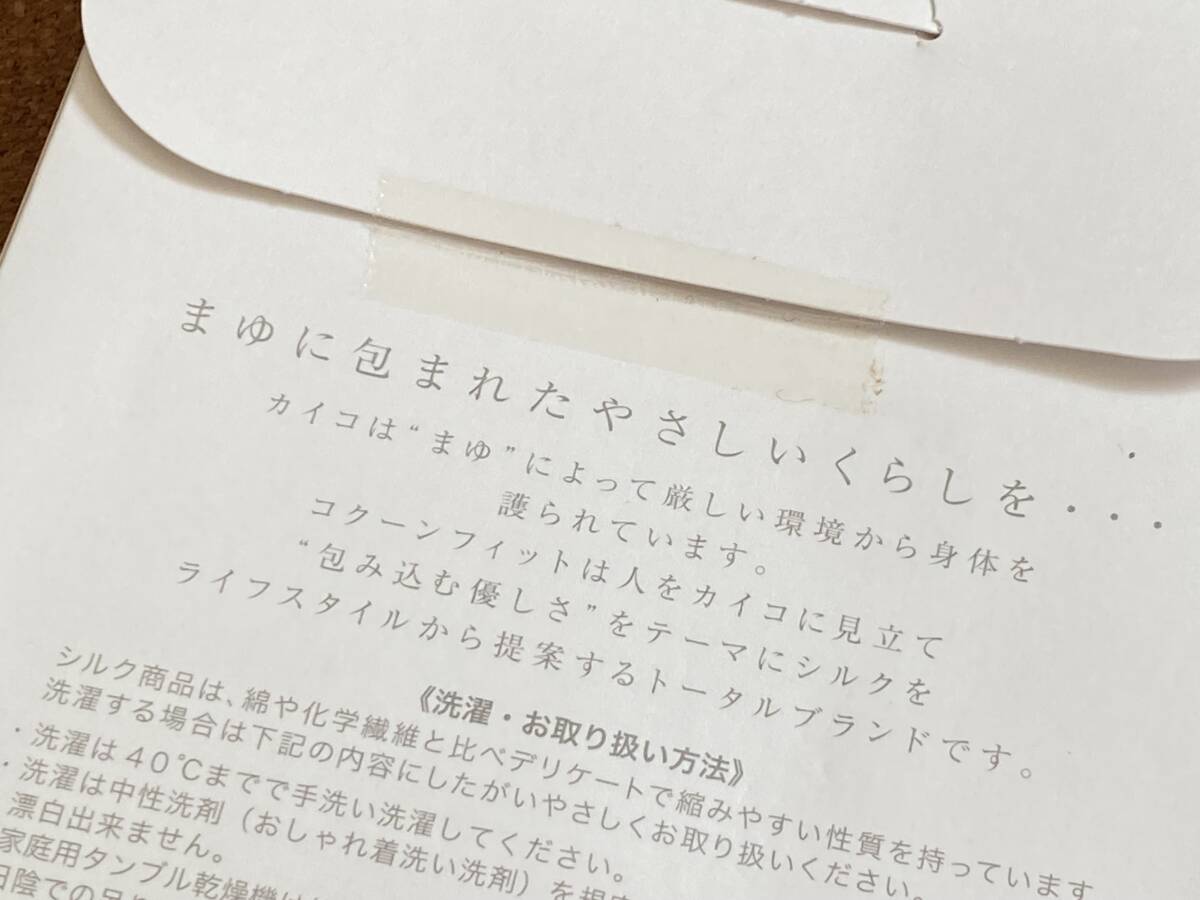 まゆに包まれたやさしいくらしを・・・
カイコは“まゆ”によって厳しい環境から身体を
護られています。
コクーンフィットは人をカイコに見立て
“包み込む優しさ”をテーマにシルクを
ライフスタイルから提案するトータルブランドです。
《洗濯・お取り扱い方法》
シルク商品は、綿や化学繊維と比べデリケートで縮みやすい性質を持っています
洗濯する場合は下記の内容にしたがいやさしくお取り扱いください。
・洗濯は40℃までで手洗い洗濯してください。
・洗濯は中性洗剤（おしゃれ着洗い洗剤）を
漂白出来ません。
家庭用タンブル乾燥機は
日陰での